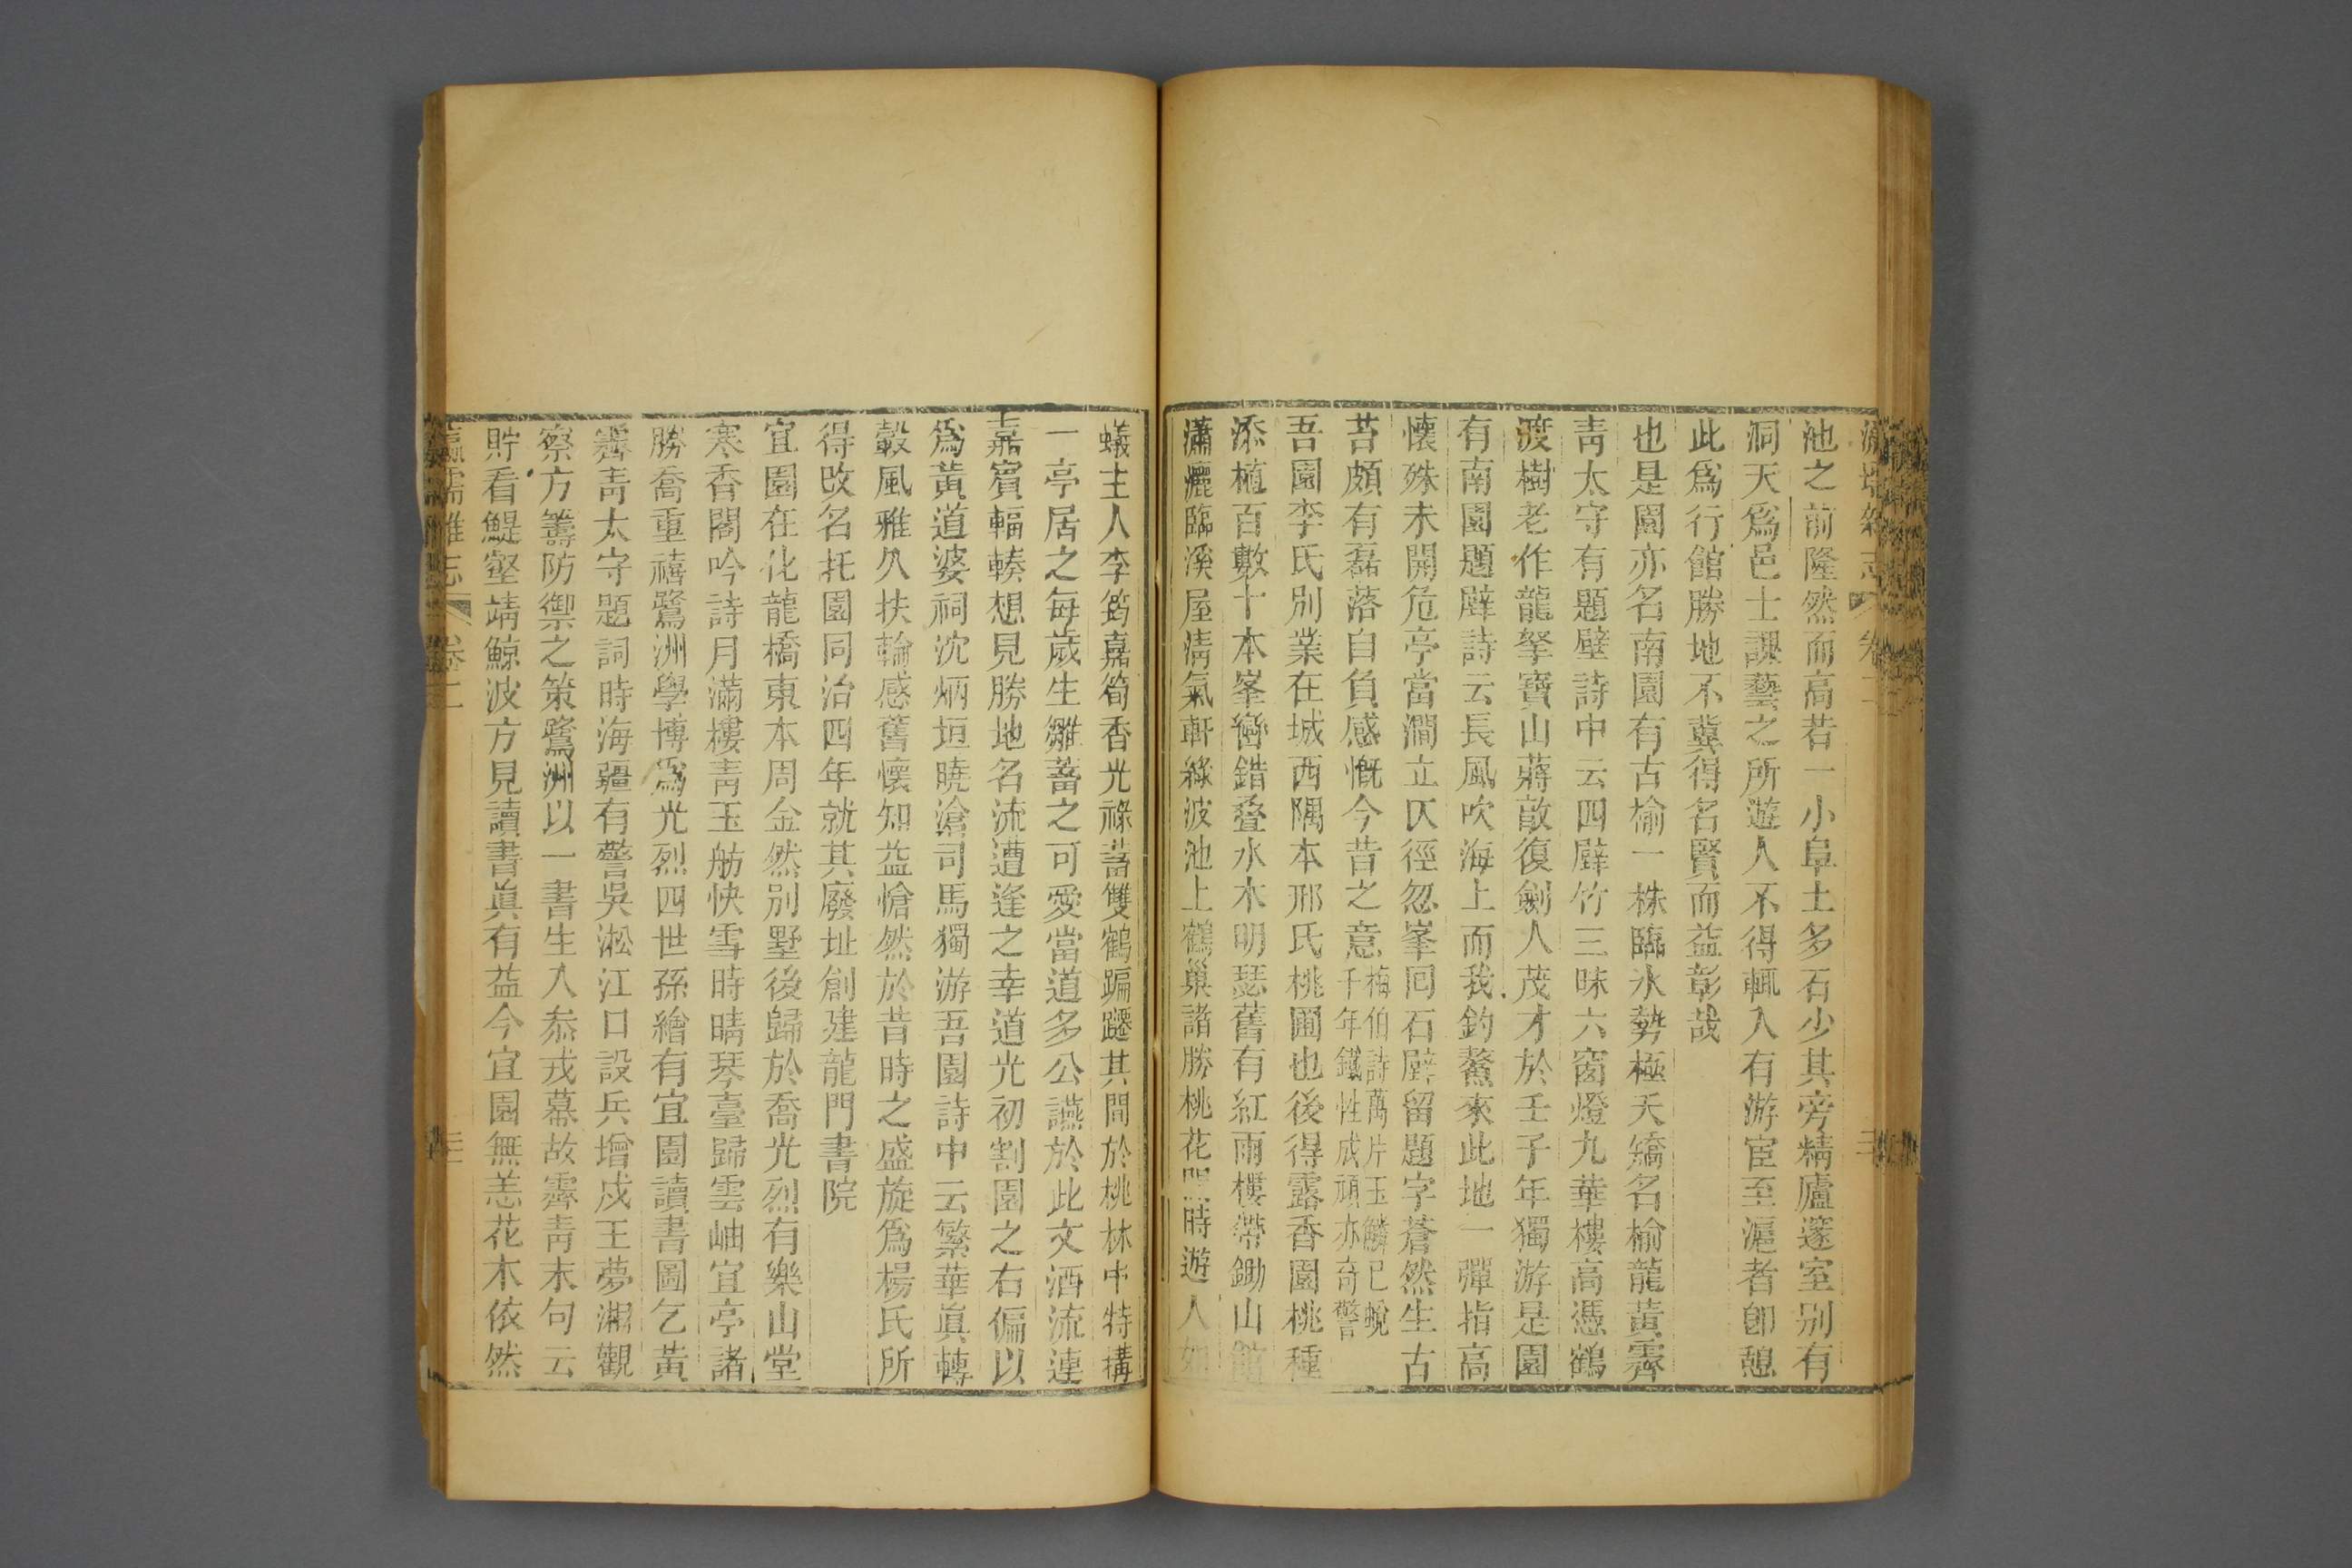 池之前隆然而高若一小阜土多石少其旁精廬邃室别有
洞天爲邑士課藝之所遊人不得輒入有游宦至滬者卽憩
此爲行館勝地不冀得名賢而益彰哉
也是園亦名南園有古榆一株臨水勢極夭矯名榆龍黃霽
靑太守有題壁詩中云四壁竹三昧六窗燈九華樓高憑鶴
渡樹老作龍拏寶山蔣敵復劍人茂才於壬子年獨游是園
有南園題壁詩云長風吹海上而我釣鰲來此地一彈指高
懷殊未開危亭當澗立仄徑忽峯囘石壁留題字蒼然生古
苔頗有磊落自負感慨今昔之意梅伯詩萬片玉鱗已蛻千年鐵性成頑亦奇警
吾園李氏別業在城西隅本邢氏桃圃也後得露香園桃種
添植百數十本峯巒錯叠水木明瑟舊有紅雨樓帶鋤山館
瀟灑臨溪屋淸氣軒綠波池上鶴巢諸勝桃花開時遊人如
蟻主人李筠嘉筍香光祿蓄雙鶴蹁躚其間於桃林中特搆
一亭居之每歲生雛蓄之可愛當道多公讌於此文酒流連
嘉賓輻輳想見勝地名流遭逢之幸道光初割園之右偏以
爲黃道婆祠沈炳垣曉滄司馬獨游吾園詩中云繁華眞轉
轂風雅久扶輪感舊懷知益愴然於昔時之盛旋爲楊氏所
得改名托園同治四年就其廢址創建龍門書院
宜園在化龍橋東本周金然別墅後歸於喬光烈有樂山堂
寒香閣吟詩月滿樓靑玉舫快雪時晴琴臺歸雲岫宜亭諸
勝喬重禧鷺洲學博爲光烈四世孫繪有宜園讀書圖乞黃
霽靑太守題詞時海疆有警吳淞江口設兵增戍王夢湘觀
察方籌防禦之策鷺洲以一書生入叅戎幕故霽靑末句云
貯看鯷壑靖鯨波方見讀書眞有益今宜園無恙花木依然
瀛壖雜志 卷二